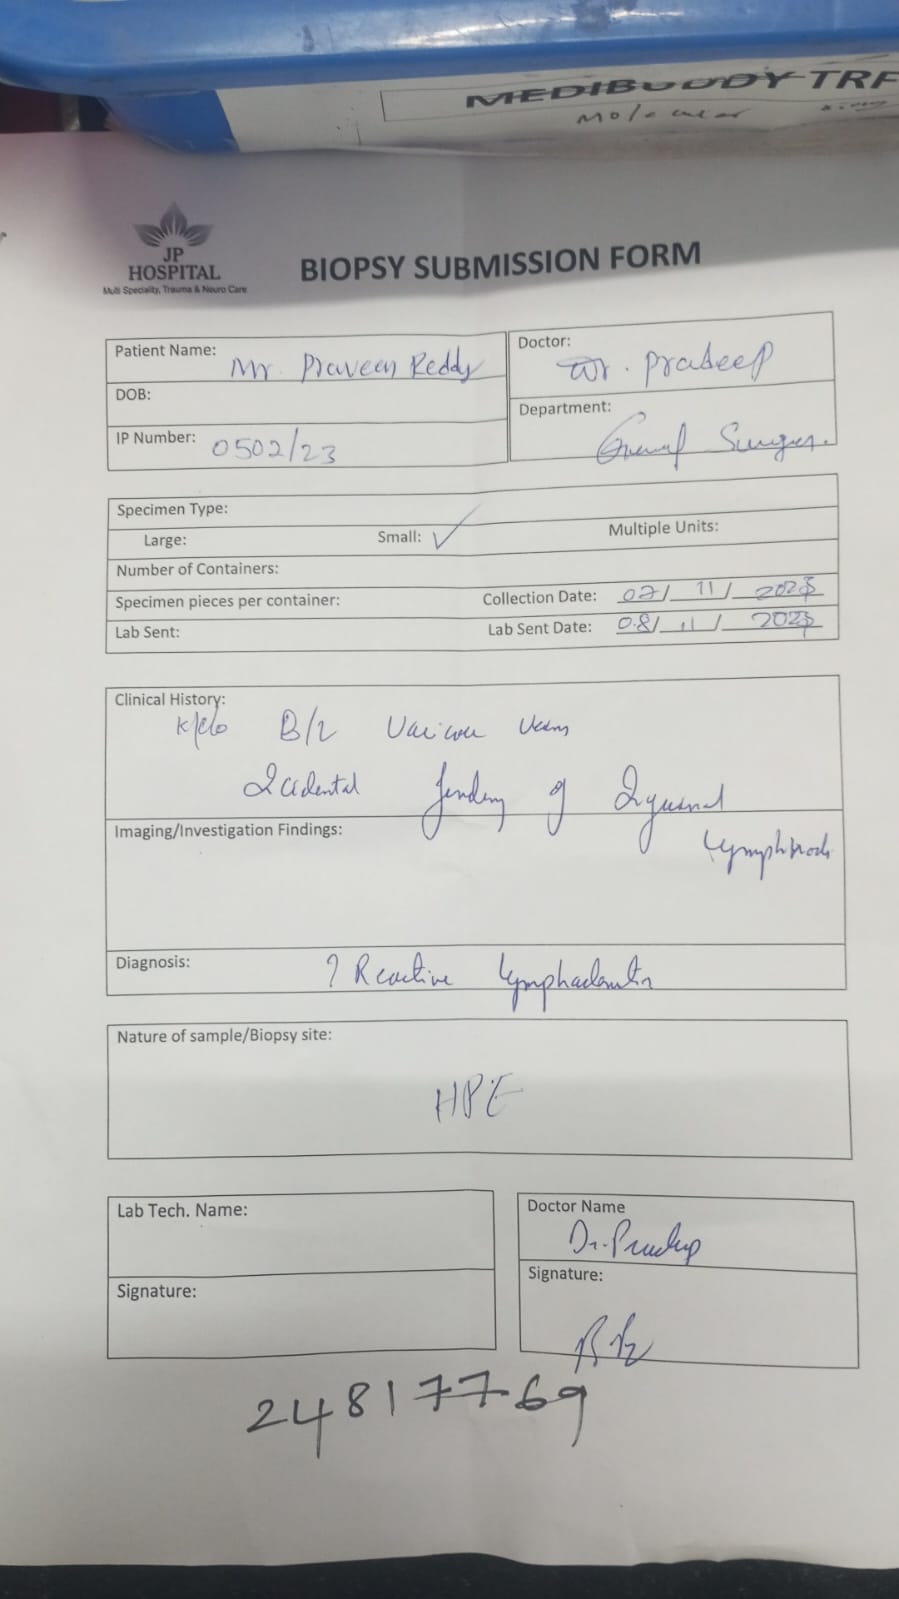 MEDIBUDDY TRF
Molecular
JP
HOSPITAL
Multi Speciality, Trauma & Neuro Care
BIOPSY SUBMISSION FORM
Patient Name: Mr. Praveen Reddy
Doctor: Dr. Pradeep
DOB:
Department: General Surgery.
IP Number: 0502/23
Specimen Type:
Large: Small: ✓ Multiple Units:
Number of Containers:
Specimen pieces per container: Collection Date: 07/ 11 / 2023
Lab Sent: Lab Sent Date: 08/ 11 / 2023
Clinical History:
K/c/o B/L Varicose Veins
Incidental finding of Inguinal
Lymphnode
Imaging/Investigation Findings:
Diagnosis: ? Reactive lymphadenitis
Nature of sample/Biopsy site:
HPE
Lab Tech. Name:
Doctor Name
Dr. Pradeep
Signature:
Signature:
24817769